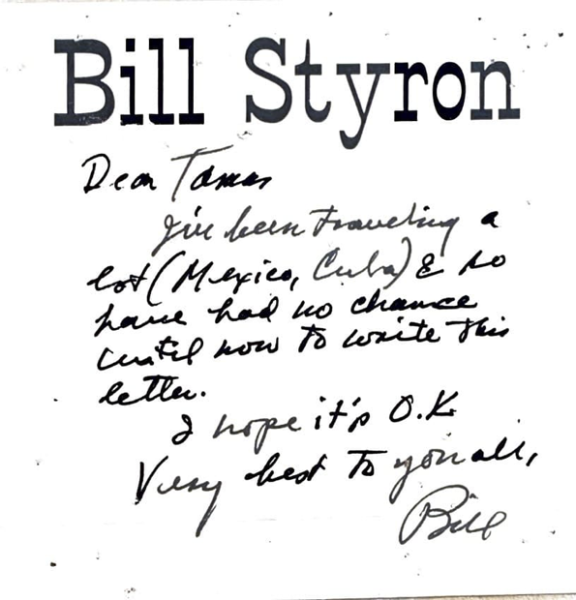 Bill Styron
Dear Tamas
I've been traveling a
lot (Mexico, Cuba) & so
have had no chance
until now to write this
letter.
I hope it's O.K.
Very best to you all,
Bill